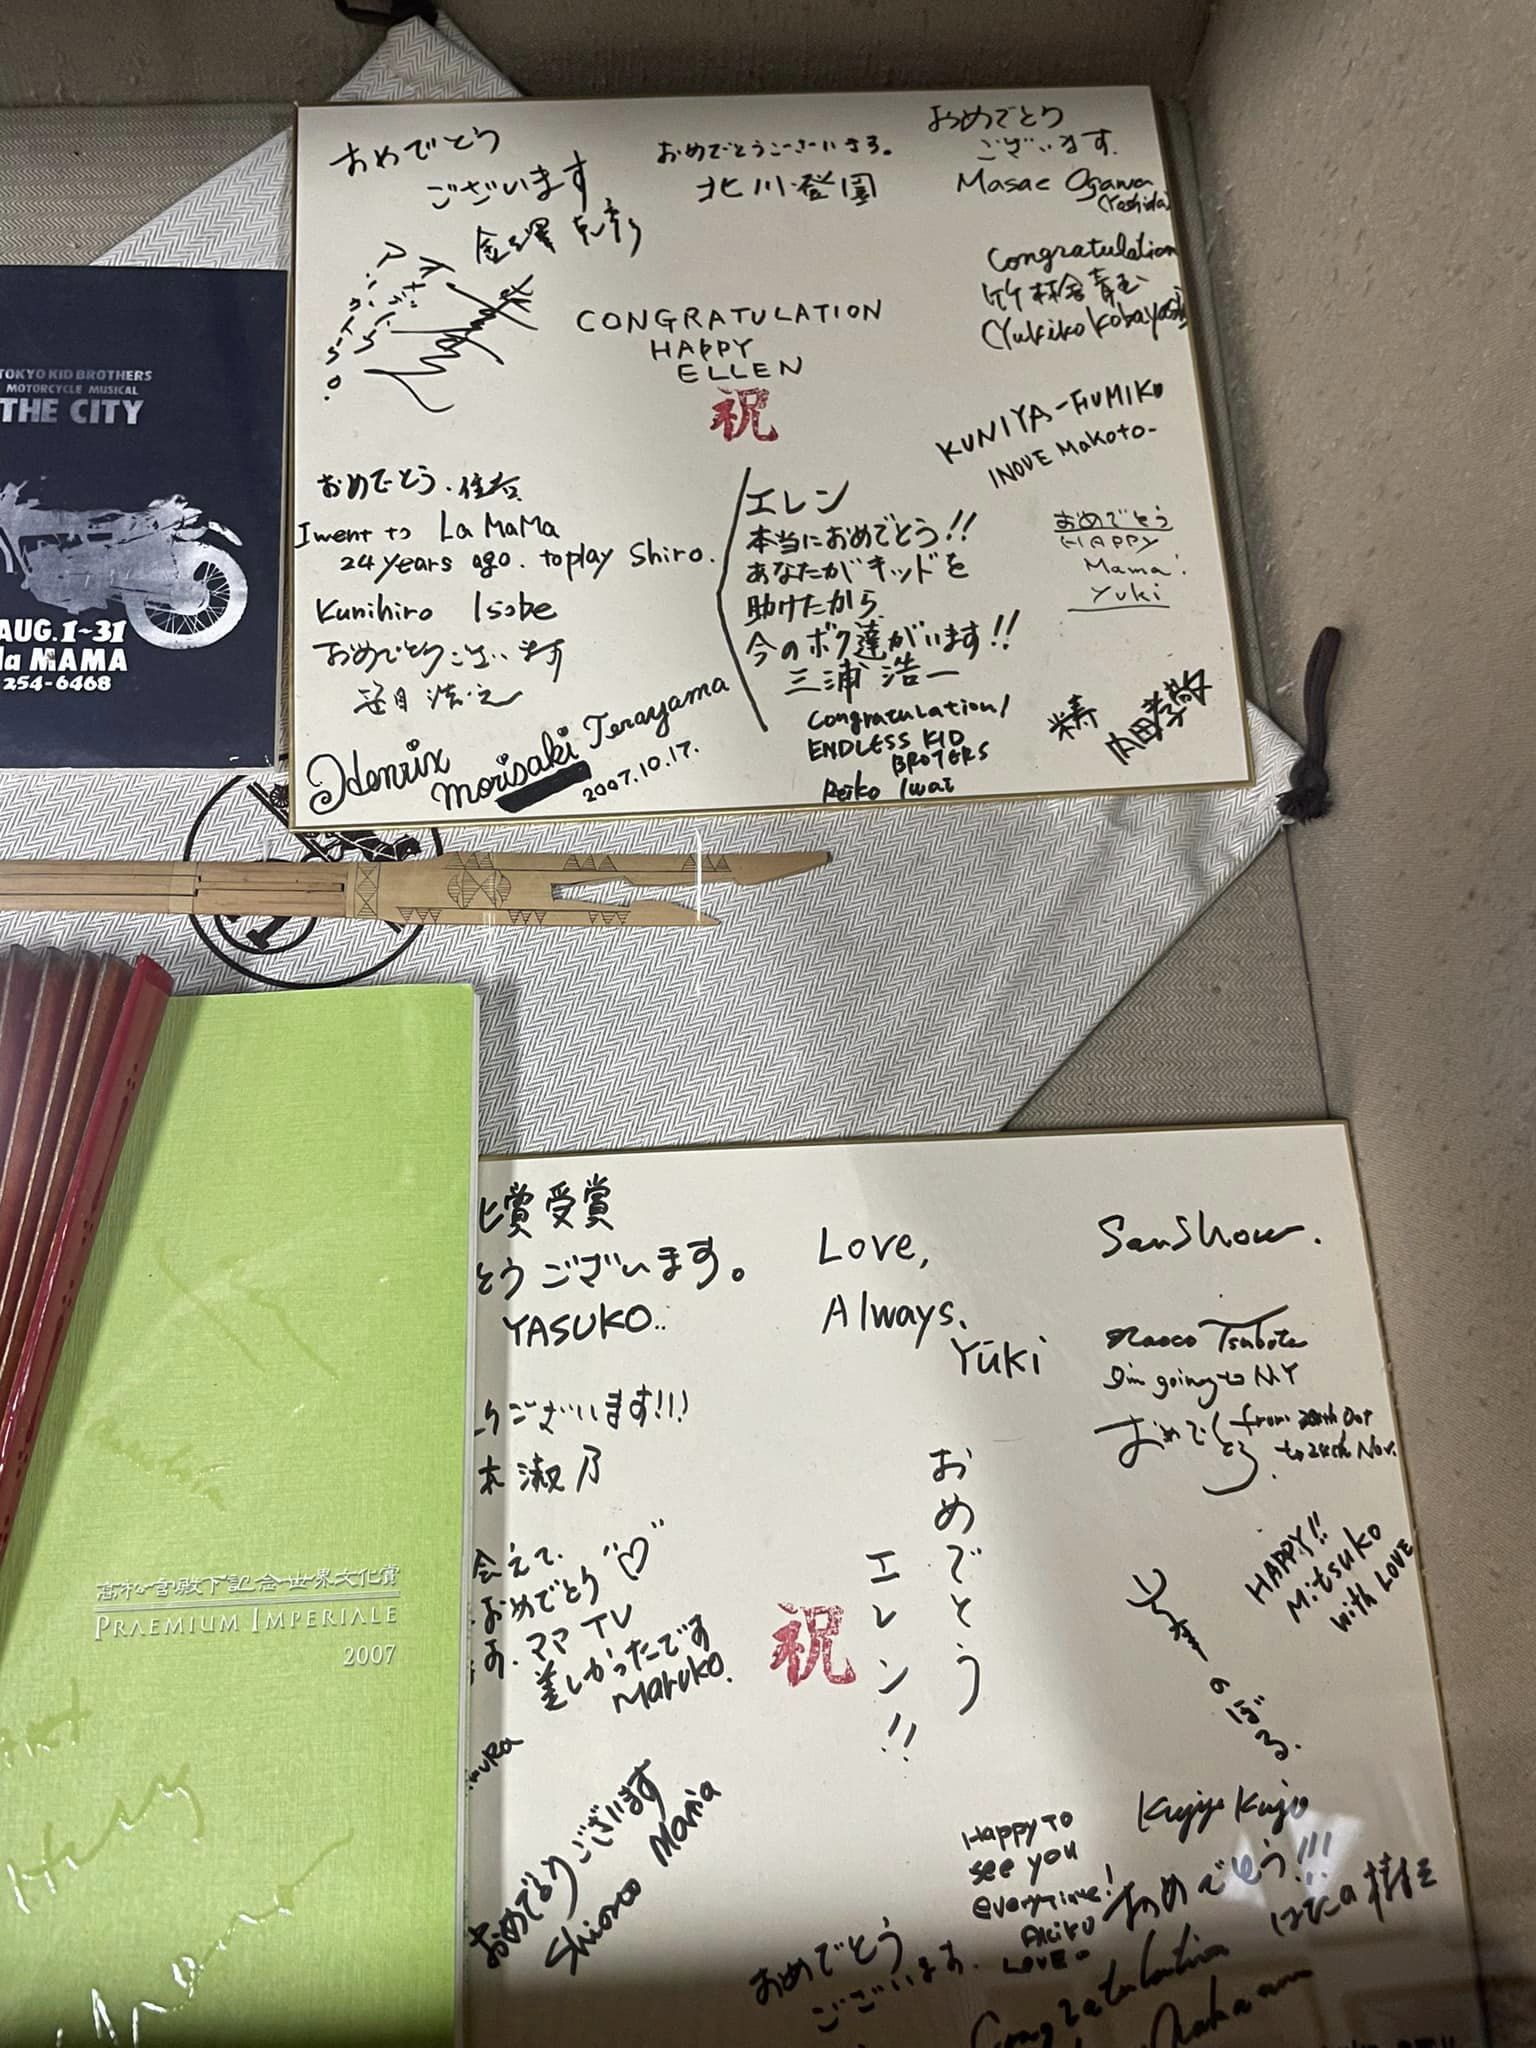 おめでとう
ございます
金澤
おめでとうございます。
北川登園
おめでとう
ございます
Masae Ogawa
(Yoshida)
Congratulation
(Yukiko Kobayashi
CONGRATULATION
HAPPY
ELLEN
祝
KUNIYA-FUMIKO
INOUE Makoto-
おめでとう
HAPPY
Mama
Yuki
おめでとう.
I went to La MaMa
24 years ago. to play Shiro.
Kunihiro Isobe
おめでとうございます
エレン
本当におめでとう!!
あなたがキッドを
助けたから
今のボク達がいます!!
三浦浩一
Congratulation!
ENDLESS KID
BROTERS
Reiko Iwai
内田
Henrix
Morisaki Terayama
2007.10.17.
TOKYO KID BROTHERS
MOTORCYCLE MUSICAL
THE CITY
AUG.1~31
la MAMA
254-6468
賞受賞
とうございます。
YASUKO..
ございます!!!
本淑乃
会えて、
おめでとう
ママ TV
差しかったです
MARUKO.
おめでとうございます
Shioto Maria
Love,
Always,
Yūki
おめでとう
エレン!!
祝
SanShow.
Naoco Tsubota
I'm going to NY
from 20th Oct
to 24th Nov.
おめでとう
HAPPY!!
Mitsuko
with LOVE
のぼる.
Happy to
see you
everytime!
Akiko
LOVE
おめでとう!!!
おめでとう
ございます.
Congratulation
高松宮殿下記念世界文化賞
PRAEMIUM IMPERIALE
2007